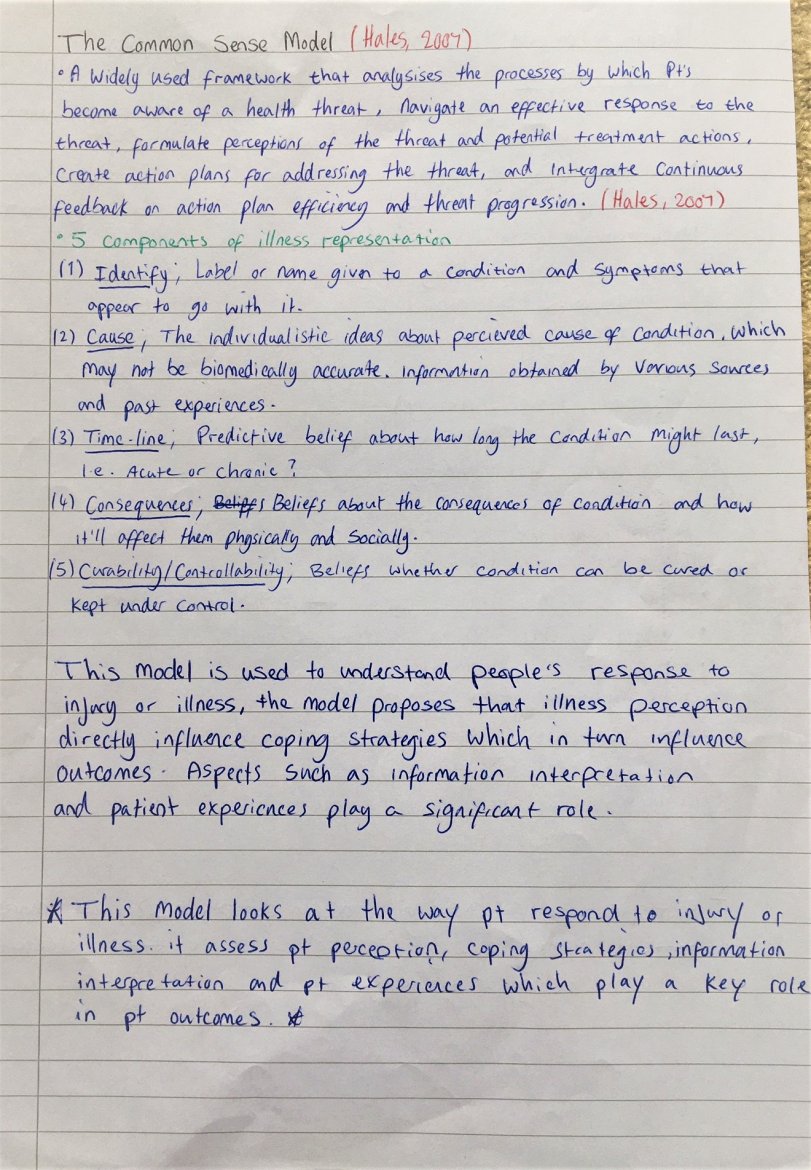 The Common Sense Model (Hales, 2007)
• A widely used framework that analysises the processes by which Pt's
become aware of a health threat, navigate an effective response to the
threat, formulate perceptions of the threat and potential treatment actions,
create action plans for addressing the threat, and intergrate continuous
feedback on action plan efficiency and threat progression. (Hales, 2007)
• 5 components of illness representation
(1) Identify; Label or name given to a condition and symptoms that
appear to go with it.
(2) Cause; The individualistic ideas about percieved cause of condition, which
may not be biomedically accurate. information obtained by various sources
and past experiences.
(3) Time-line; Predictive belief about how long the condition might last,
i.e. Acute or chronic?
(4) Consequences; Beliefs Beliefs about the consequences of condition and how
it'll affect them physically and socially.
(5) Curability/Controllability; Beliefs whether condition can be cured or
kept under control.
This model is used to understand people's response to
injury or illness, the model proposes that illness perception
directly influence coping strategies which in turn influence
outcomes. Aspects such as information interpretation
and patient experiences play a significant role.
* This model looks at the way pt respond to injury or
illness. it assess pt perception, coping strategies, information
interpretation and pt experiences which play a key role
in pt outcomes. *